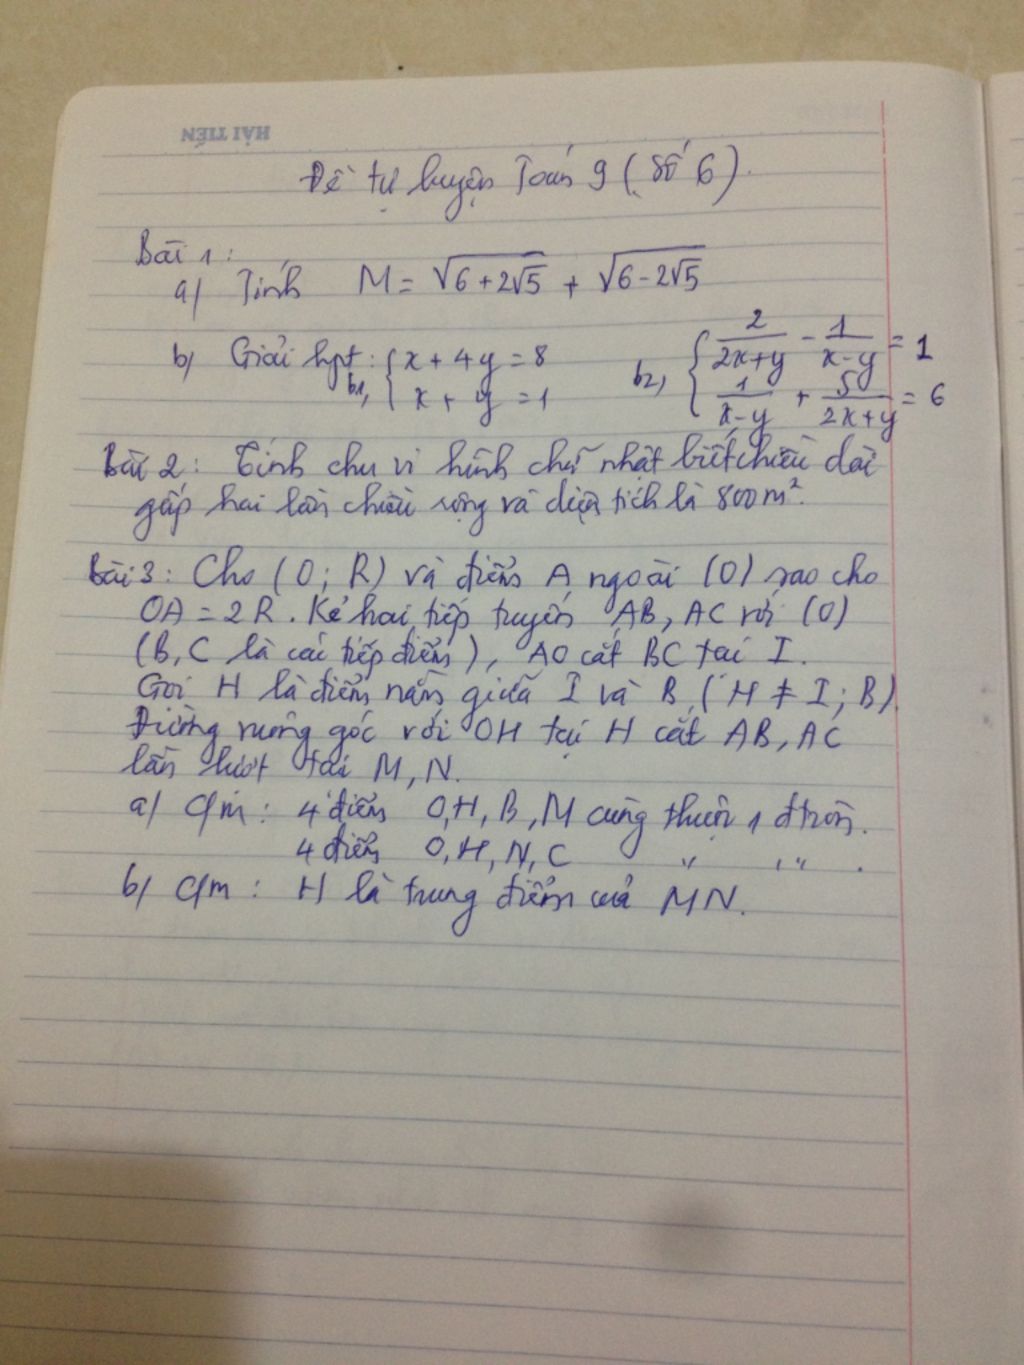 HẢI TIẾN
Đề tự luyện Toán 9 (Số 6).
Bài 1:
a) Tính M = √(6+2√5) + √(6-2√5)
b) Giải hpt: b1, { x + 4y = 8 b2, { 2/(2x+y) - 1/(x-y) = 1
x + y = 1 1/(x-y) + 5/(2x+y) = 6
Bài 2: Tính chu vi hình chữ nhật biết chiều dài
gấp hai lần chiều rộng và diện tích là 800m².
Bài 3: Cho (O; R) và điểm A ngoài (O) sao cho
OA = 2R. Kẻ hai tiếp tuyến AB, AC với (O)
(B, C là các tiếp điểm), AO cắt BC tại I.
Gọi H là điểm nằm giữa I và B (H ≠ I; B).
Đường vuông góc với OH tại H cắt AB, AC
lần lượt tại M, N.
a) C/m: 4 điểm O, H, B, M cùng thuộc 1 đtròn.
4 điểm O, H, N, C " " .
b) C/m: H là trung điểm của MN.